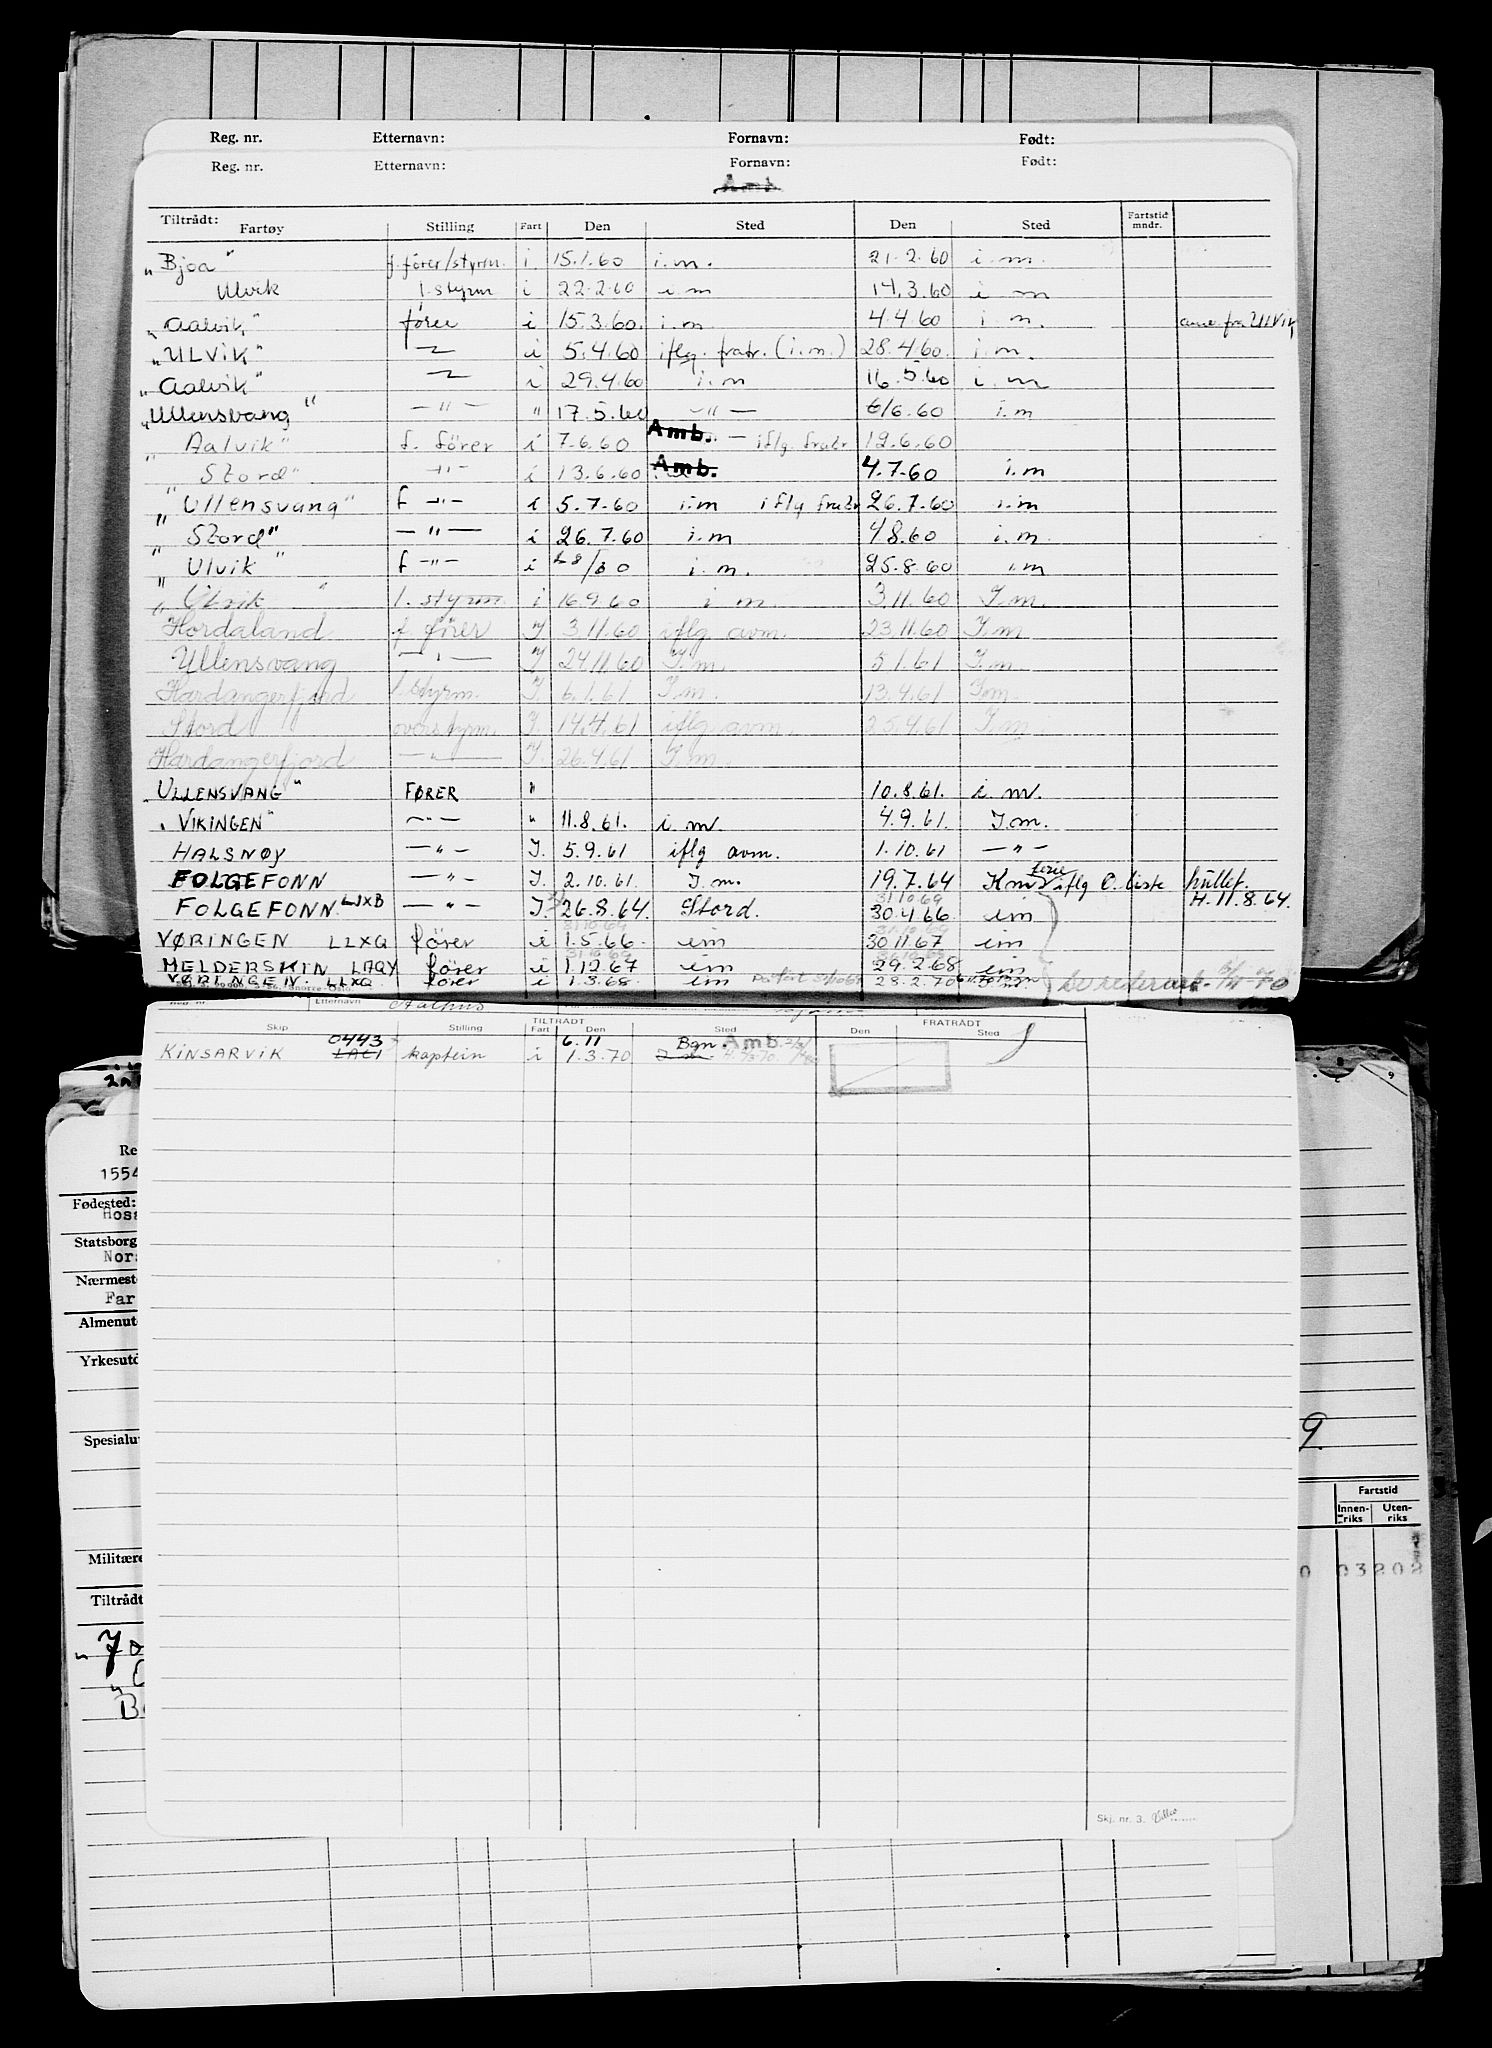 Reg. nr. Etternavn: Fornavn: Født:
Reg. nr. Etternavn: Fornavn: Født:
Amb.
Tiltrådt:
Fartøy Stilling Fart Den Sted Den Sted Fartstid mndr.
"Bjoa" f. fører/styrm. i. 15.1.60 i.m. 21.2.60 i.m.
Ulvik 1. styrm i 22.2.60 i m 14.3.60 i m
"Aalvik" fører i 15.3.60. i.m 4.4.60 i.m. fra ULVIK
"ULVIK" i 5.4.60 iflg. fratr. (i.m.) 28.4.60. i.m.
"Aalvik" i 29.4.60 i.m 16.5.60 i.m
"Ullensvang" —"— " 17.5.60 —"— 6/6.60 i.m
"Aalvik" f. fører i 7.6.60 Amb. — iflg. fratr 12.6.60
"Stord" —"— i 13.6.60 Amb. 4.7.60 i.m
"Ullensvang" f —"— i 5.7.60 i.m iflg fratr 26.7.60 i.m
"Stord" —"— i 26.7.60 i.m 4.8.60 i.m
"Ulvik" f —"— i i.m. 25.8.60 i.m
"Ulvik" 1. styrm i 16.9.60 i m. 3.11.60 I.m.
Hordaland f. fører I 3.11.60 iflg avm. 23.11.60 I.m
Ullensvang —"— I 24.11.60 I.m. 5.1.61 I.m.
Hardangerfjord 1. styrm. I. 6.1.61 I.m. 13.4.61 I.m.
Stord overstyrm. I. 14.4.61 iflg. avm. 25.4.61 I.m.
Hardangerfjord —"— I. 26.4.61 I.m.
"ULLENSVANG" FØRER " 10.8.61. i.m.
"VIKINGEN" —"— " 11.8.61. i.m. 4.9.61. I.m.
HALSNØY —"— I. 5.9.61 iflg avm. 1.10.61 —"—
FOLGEFONN —"— I. 2.10.61. I.m. 19.7.64 Km ferie iflg O. liste hullet. H. 11.8.64.
FOLGEFONN LJXB —"— I. 26.8.64. Stord. 31.10.69 30.4.66 im
VØRINGEN LLXQ fører i 1.5.66. im 30.11.67 im
MELDERSKIN LAQY fører i 1.12.67 im 29.2.68 im
VØRINGEN. LLXQ fører i 1.3.68. im 28.2.70
Etternavn Aalhus
TILTRÅDT FRATRÅDT
Skip Stilling Fart Den Sted Den Sted
KINSARVIK 0443 LAEI kaptein i 6.11 1.3.70 Bgn. Amb.
Skj. nr. 3.
1554
Fødested:
Statsborg
Nor
Nærmest
Far
Almenut
Yrkesutd
Spesialu
Militære
Tiltrådt
9.
Fartstid
Innen-riks Uten-riks
0 03202